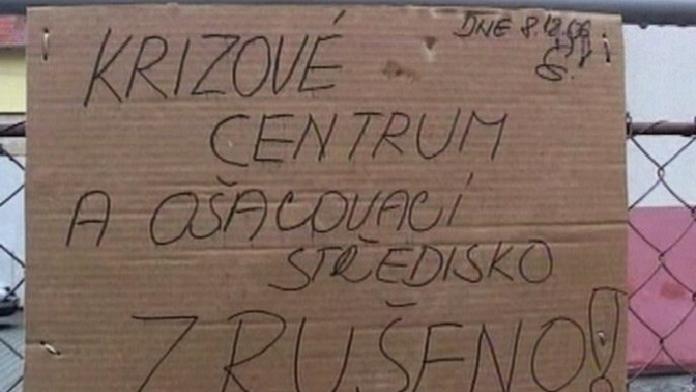 DNE 8.12.06
KRIZOVÉ
CENTRUM
A OŠACOVACÍ
STŘEDISKO
ZRUŠENO!